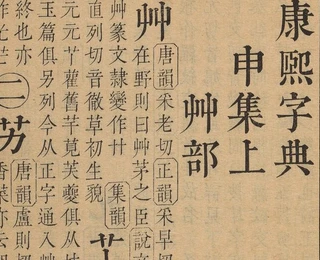 康熙字典
申集上
艸部
艸唐韻采老切正韻采早切
在野則曰艸茅之臣說文
艸篆文隸變作廾集韻
直列切音徹草初生貌
元元艹雚舊芊莧芙夔俱从
玉篇俱另列今从正字通入艸
終也亦
二艻唐韻盧則切
香菜